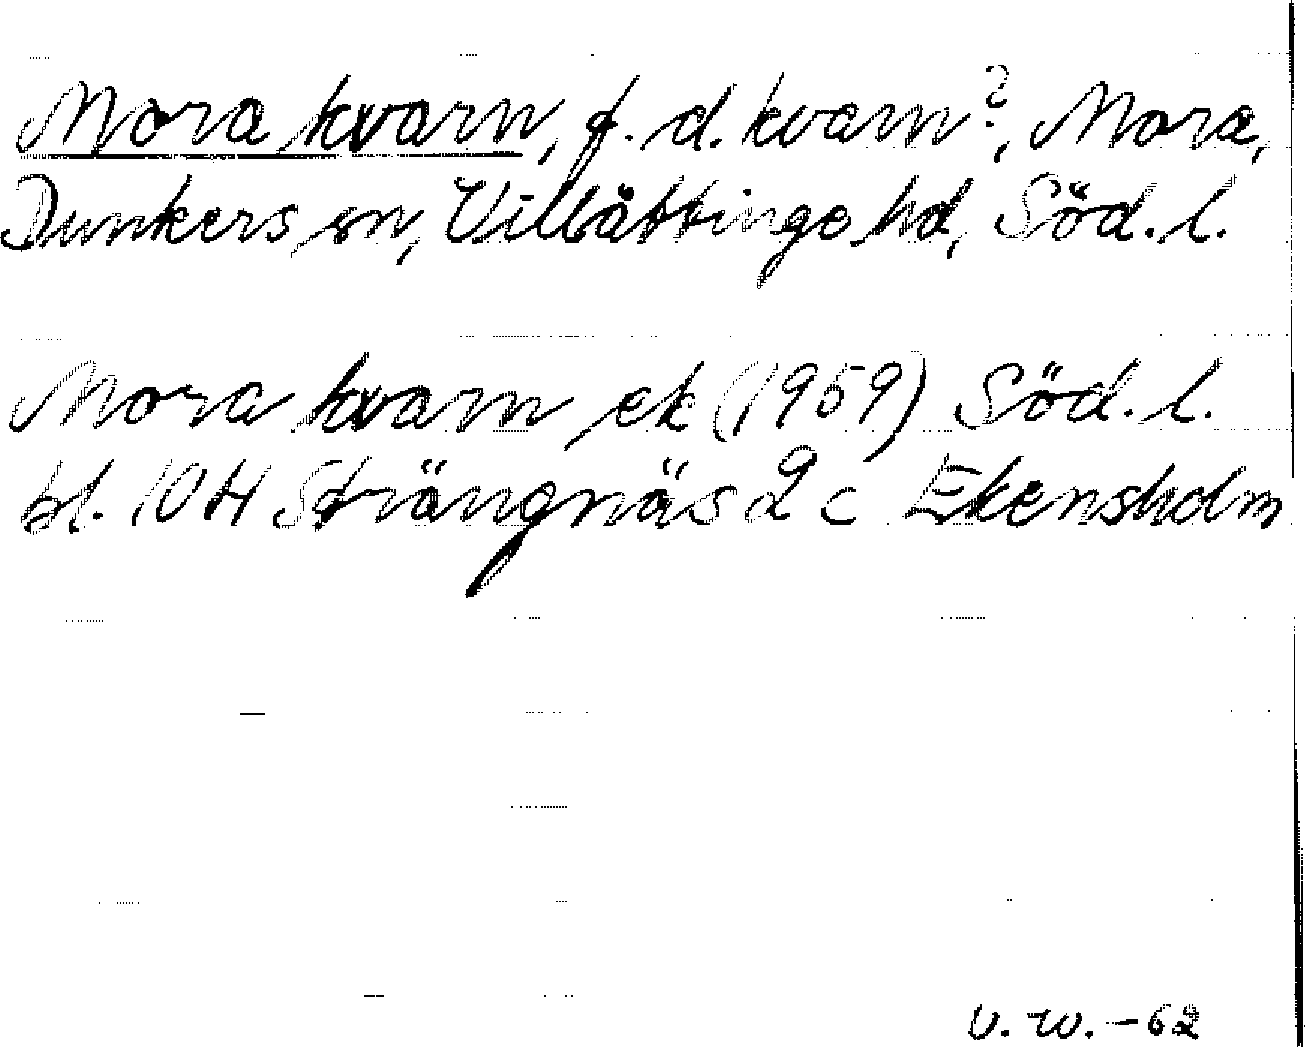 Mora kvarn, f.d. kvarn?, Mora,
Dunkers sn, Villåttinge hd, Söd.l.
Mora kvarn ek (1959) Söd.l.
bl. 10H Strängnäs 2c Ekensholm
V.W.-62